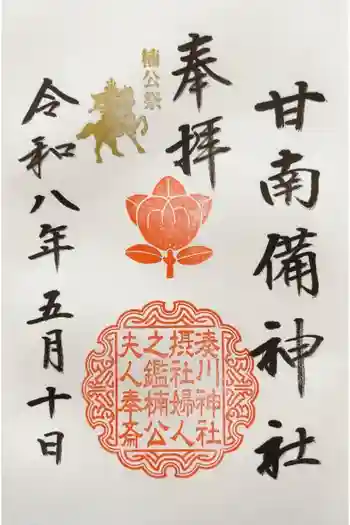 甘南備神社
奉拝
楠公祭
湊川神社
摂社婦人
之鑑楠公
夫人奉斎
令和八年五月十日